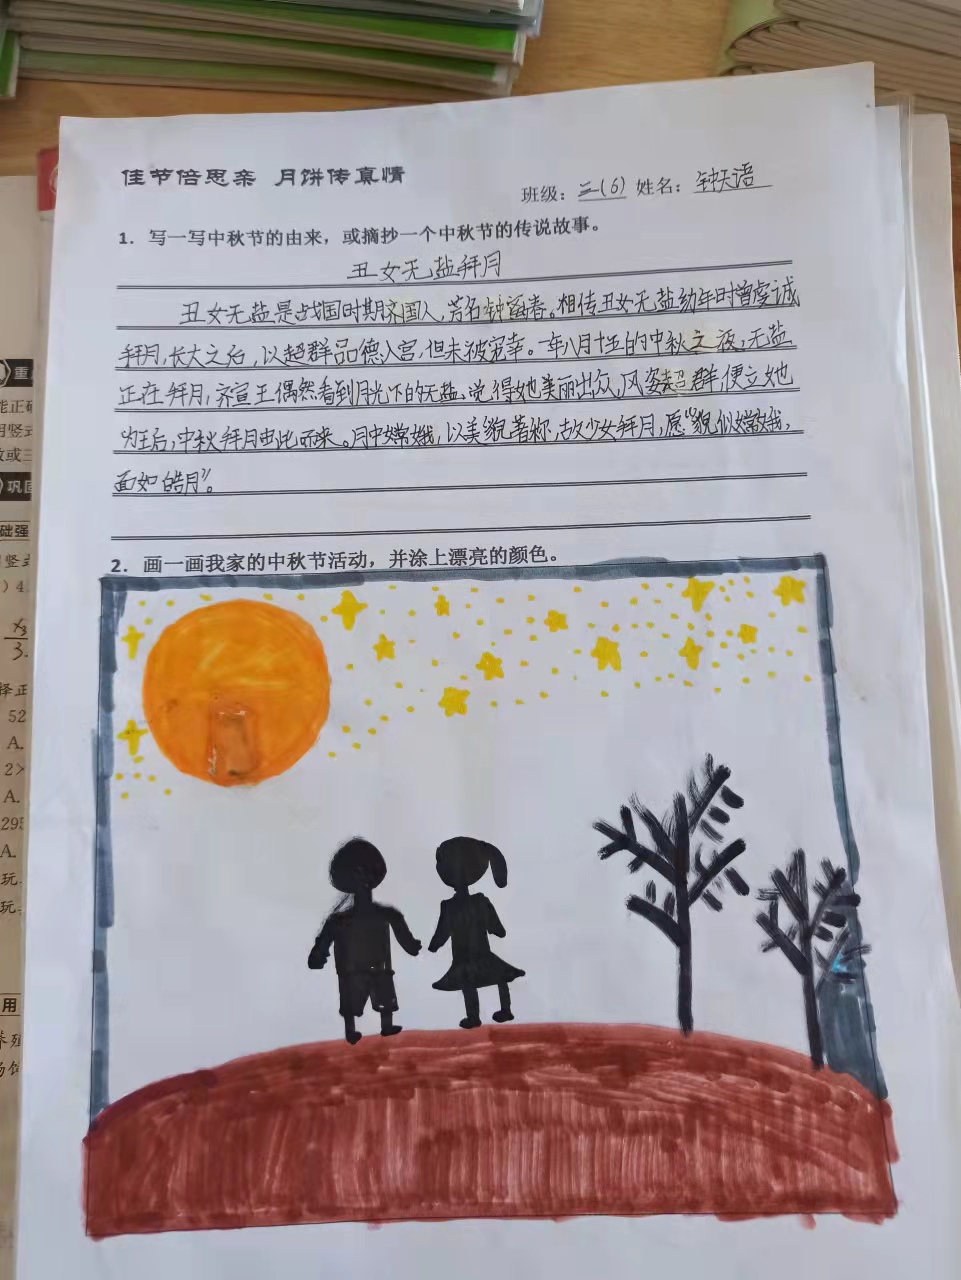 佳节倍思亲 月饼传真情
班级：三(6) 姓名：钟天语
1. 写一写中秋节的由来，或摘抄一个中秋节的传说故事。
丑女无盐拜月
丑女无盐是战国时期齐国人，芳名钟离春。相传丑女无盐幼年时曾虔诚
拜月，长大之后，以超群品德入宫，但未被宠幸。一年八月十五的中秋之夜，无盐
正在拜月，齐宣王偶然看到月光下的无盐。觉得她美丽出众，风姿超群，便立她
为王后，中秋拜月由此而来。月中嫦娥，以美貌著称，故少女拜月，愿“貌似嫦娥，
面如皓月”。
2. 画一画我家的中秋节活动，并涂上漂亮的颜色。
重
能正确
用竖式
数或三
巩固
础强
竖式
) 4
3.
择正
52
A.
2×
A.
295
A.
玩
玩
用
养殖